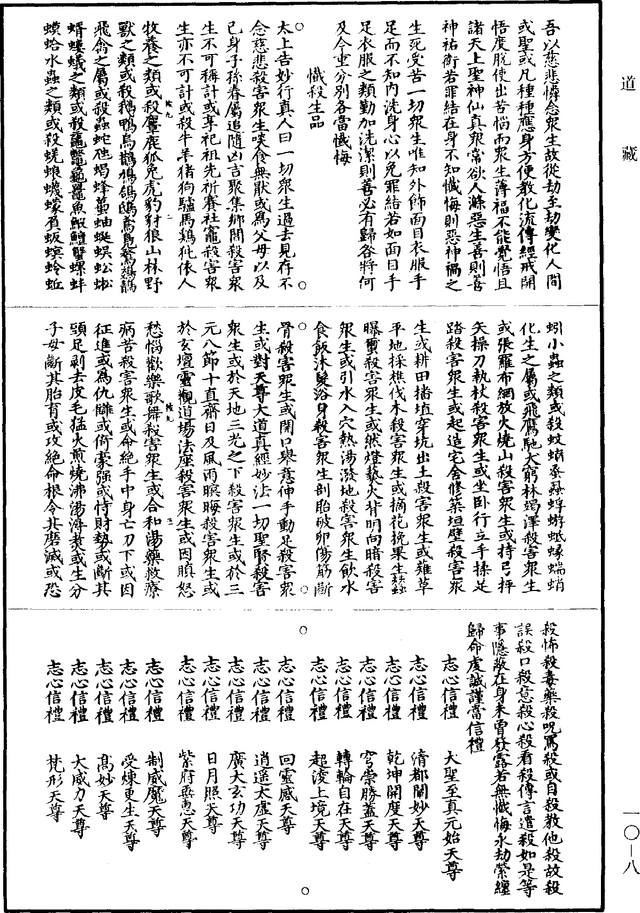 道藏
吾以慈悲憐愍衆生故從劫至劫變化人間
或聖或凡種種應身方便教化流傳經戒開
悟度脫使出苦惱而衆生薄福不能覺悟且
諸天上聖神仙真衆常欲人滌惡生善則善
神祐衛若罪結在身不知懺悔則惡神禍之
生死受苦一切衆生唯知外飾面目衣服手
足而不知內洗身心以免罪結若如面目手
足衣服之類勤加洗潔則善必有歸咎將何
及今重分別各當懺悔
懺殺生品
太上告妙行真人曰一切衆生過去見存不
念慈悲殺害衆生啖食無猒或爲父母以及
己身子孫眷屬追隨凶吉聚集鄉閭殺害衆
生不可稱計或享祀祖先祈賽社竈殺害衆
生亦不可計或殺牛羊猪狗驢馬鷄㹠依人
牧養之類或殺麞鹿狐兔虎豹豺狼山林野
獸之類或殺鵝鴨鳥鵲鴿鴟鳶鷄鶉
飛禽之屬或殺蟲蛇虺蝎蜂蠆蚰蜒蜈蚣蜥
蜴螻蟻之類或殺黿鼉龜鼈魚鰕鱓蟹螺蚌
蟆蛤水蟲之類或殺蜣蜋蠛蠓
蚓小蟲之類或殺蚊蝱蚤蝨蜉蝣蚳蝝蝡蛸
化生之屬或飛鷹馳犬窮林竭澤殺害衆生
或張羅布網放火燒山殺害衆生或持弓抨
矢操刀執杖殺害衆生或坐卧行立手揉足
踏殺害衆生或起造宅舍修築垣壁殺害衆
生或耕田播埴穿坑出土殺害衆生或薙草
平地採樵伐木殺害衆生或摘花挽果生蠶
曝蠒殺害衆生或然燈爇火背明向暗殺害
衆生或引水入穴熱湯潑地殺害衆生飲水
食飯沐髮浴身殺害衆生剖胎破卵傷筋斷
骨殺害衆生或開口舉意伸手動足殺害衆
生或對天尊大道真經妙法一切聖賢殺害
衆生或於天地三光之下殺害衆生或於三
元八節十直齋日及風雨暝晦殺害衆生或
於玄壇靈觀道場法座殺害衆生或因瞋怒
愁惱歡樂歌舞殺害衆生或合和湯藥救療
病苦殺害衆生或命絕手中身亡刀下或因
征進或爲仇讎或倚豪强或恃財勢或斷其
頭足剥去皮毛猛火煎燒沸湯淹煑或生分
子母斷其胎育或攻絕命根令其磨滅或恐
殺怖殺毒藥殺呪罵殺或自殺教他殺故殺
誤殺口殺意殺心殺看殺傳言遣殺如是等
事隱蔽在身未曾發露若無懺悔永劫縈纏
歸命虔誠謹當信禮
志心信禮 大聖至真元始天尊
志心信禮 清都開妙天尊
志心信禮 乾坤開度天尊
志心信禮 穹崇勝蓋天尊
志心信禮 轉輪自在天尊
志心信禮 超淩上境天尊
志心信禮 回靈威天尊
志心信禮 逍遥太虛天尊
志心信禮 廣大玄功天尊
志心信禮 日月照天尊
志心信禮 紫府無患天尊
志心信禮 制威魔天尊
志心信禮 受煉更生天尊
志心信禮 高妙天尊
志心信禮 大威力天尊
志心信禮 梵形天尊
一〇—八